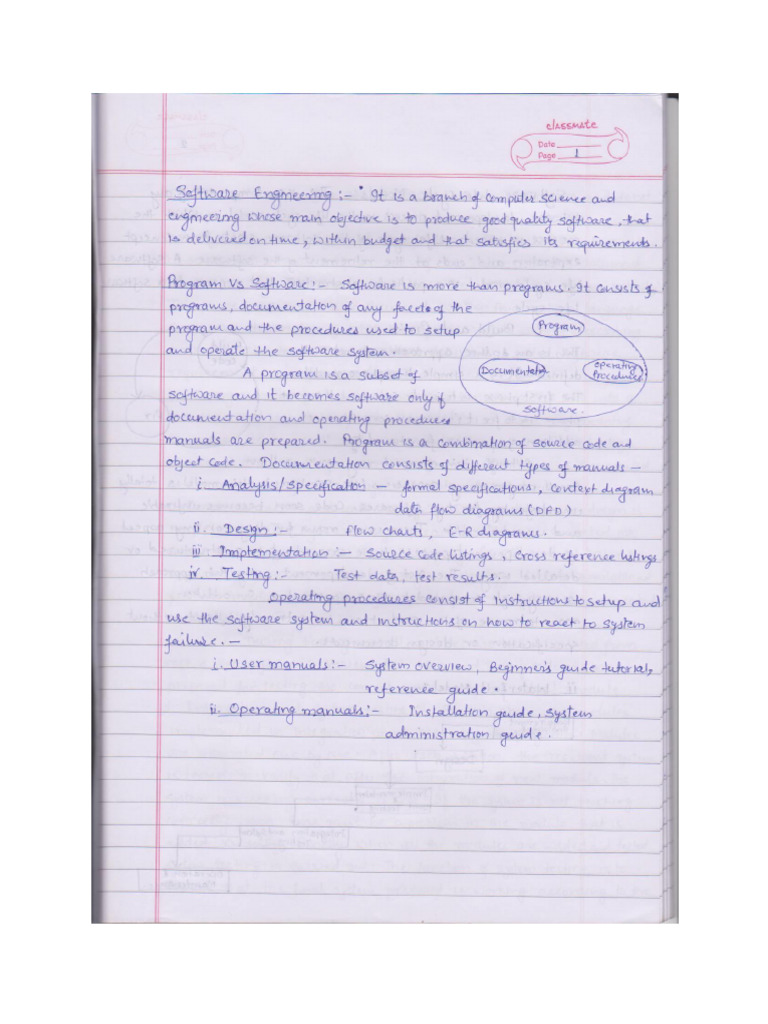 classmate
Date
Page 1
Software Engineering :- • It is a branch of computer science and
engineering whose main objective is to produce good quality software, that
is delivered on time, within budget and that satisfies its requirements.
Program Vs Software :- Software is more than programs. It consists of
programs, documentation of any facets of the
program and the procedures used to setup
and operate the software system.
Program
Documentation
Operating
Procedures
software.
A program is a subset of
software and it becomes software only if
documentation and operating procedures
manuals are prepared. Program is a combination of source code and
object code. Documentation consists of different types of manuals —
i. Analysis/Specification — formal specifications, context diagram
data flow diagrams (DFD)
ii. Design :- flow charts, E-R diagrams.
iii Implementation :- Source code listings, cross reference listings
iv. Testing :- Test data, test results.
Operating procedures consist of instructions to setup and
use the software system and instructions on how to react to system
failure. —
i. User manuals :- System overview, Beginner's guide tutorial,
reference guide.
ii. Operating manuals :- Installation guide, system
administration guide.